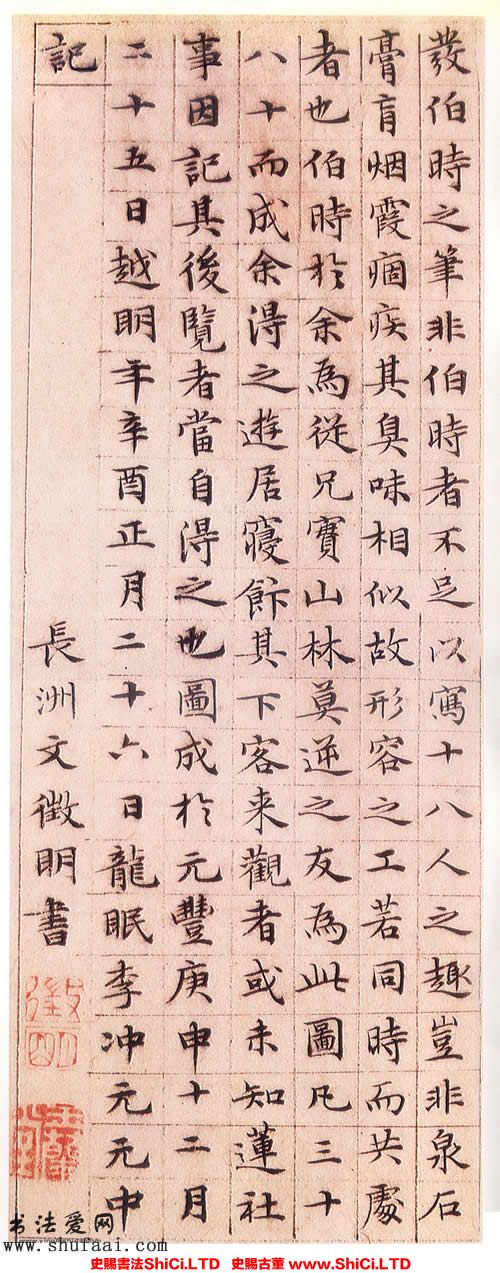 發伯時之筆非伯時者不足以寫十八人之趣豈非泉石
膏肓烟霞痼疾其臭味相似故形容之工若同時而共處
者也伯時於余為從兄實山林莫逆之友為此圖凡三十
八十而成余得之遊居寢飰其下客来觀者或未知蓮社
事因記其後覽者當自得之也圖成於元豐庚申十二月
二十五日越明年辛酉正月二十六日龍眠李冲元元中
記
長洲文徵明書
徵明
书法爱网
www.shufaai.com
史賜書法ShiCi.LTD 史賜古董 www.ShiCi.LTD